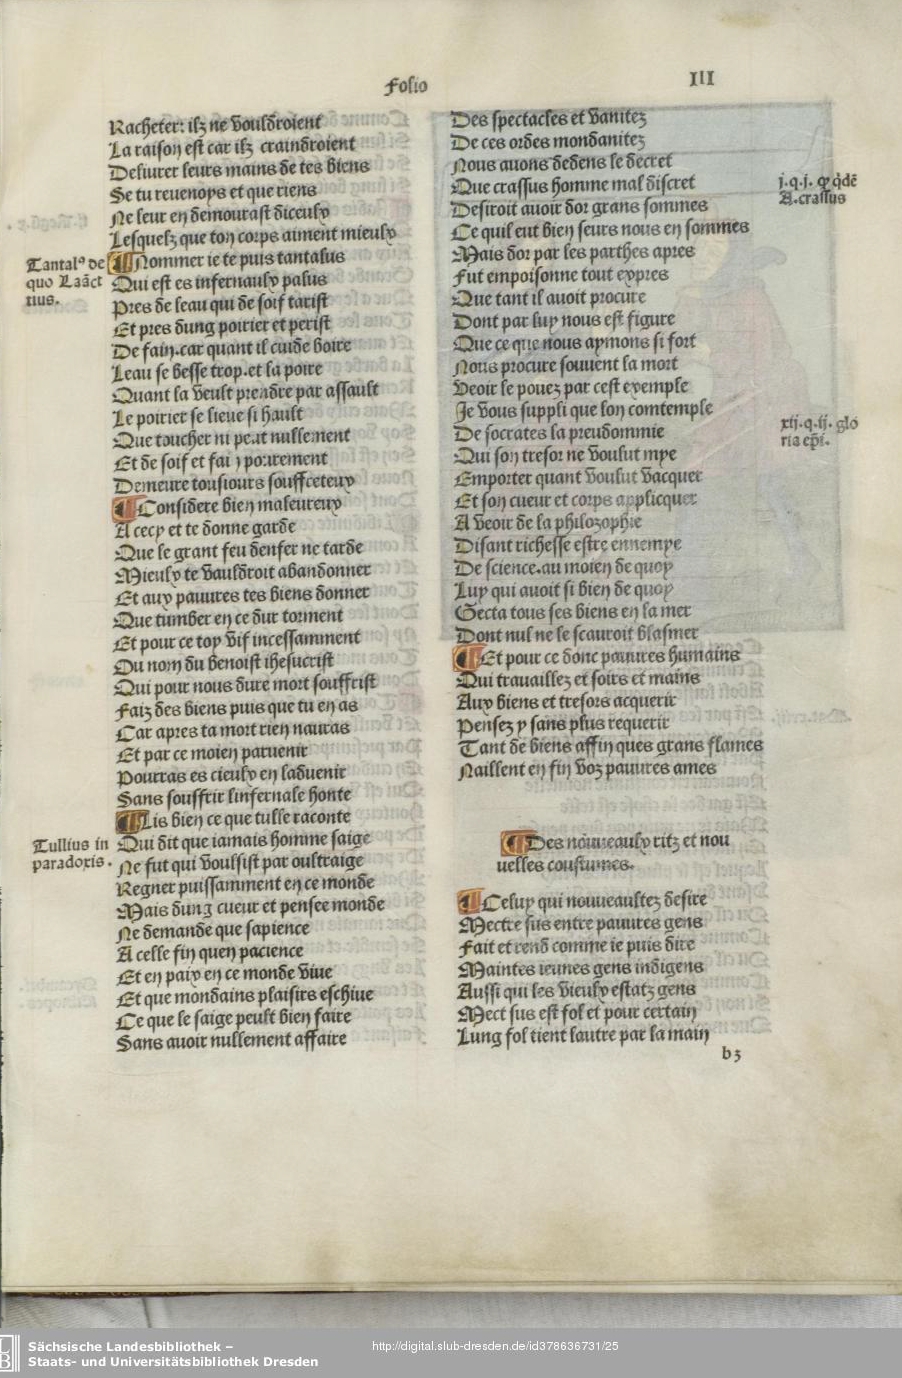 Folio III
Racheter: ilz ne vouldroient
La raison est car ilz craindroient
Deliurer leurs mains de tes biens
Se tu reuenoys et que riens
Ne leur en demourast diceulx
Lesquelz que ton corps aiment mieulx
Tantalꝰ de
quo Laāct
tius.
¶ Nommer ie te puis tantalus
Qui est es infernaulx palus
Pres de leau qui de soif tarist
Et pres dung poirier et perist
De fain.car quant il cuide boire
Leau se besse trop.et la poire
Quant la veult prendre par assault
Le poirier se lieue si hault
Que toucher ni peut nullement
Et de soif et fain pourement
Demeure tousiours souffreteux
¶ Considere bien maleureux
A cecy et te donne garde
Que le grant feu denfer ne tarde
Mieulx te vauldroit abandonner
Et aux pauures tes biens donner
Que tumber en ce dur torment
Et pour ce toy vif incessamment
Ou nom du benoist ihesucrist
Qui pour nous dure mort souffrist
Faiz des biens puis que tu en as
Car apres ta mort rien nauras
Et par ce moien paruenir
Pourras es cieulx en laduenir
Sans souffrir linfernale honte
¶ Lis bien ce que tulle raconte
Tullius in
paradoxis.
Qui dit que iamais homme saige
Ne fut qui voulsist par oultraige
Regner puissamment en ce monde
Mais dung cueur et pensee monde
Ne demande que sapience
A celle fin quen pacience
Et en paix en ce monde viue
Et que mondains plaisirs eschiue
Ce que le saige peult bien faire
Sans auoir nullement affaire
Des spectacles et vanitez
De ces ordes mondanitez
Nous auons dedens le decret
Que crassus homme mal discret
j.q.j. qp q̄dē
A.crassus
Desiroit auoir dor grans sommes
Ce quil eut bien seurs nous en sommes
Mais dor par les parthes apres
Fut empoisonne tout expres
Que tant il auoit procure
Dont par luy nous est figure
Que ce que nous aymons si fort
Nous procure souuent la mort
Veoir le pouez par cest exemple
Je vous suppli que lon comtemple
De socrates la preudommie
xij.q.ij. glo
ria ep̄i.
Qui son tresor ne voulut mye
Emporter quant voulut vacquer
Et son cueur et corps applicquer
A veoir de la philozophie
Disant richesse estre ennemye
De science.au moien de quoy
Luy qui auoit si bien de quoy
Gecta tous ses biens en la mer
Dont nul ne le scauroit blasmer
¶ Et pour ce donc pauures humains
Qui trauaillez et soirs et mains
Aux biens et tresors acquerir
Pensez y sans plus requerir
Tant de biens affin ques grans flames
Naillent en fin voz pauures ames
¶ Des nouueaulx ritz et nou
uelles coustumes.
¶ Celuy qui nouueaultez desire
Mectre sus entre pauures gens
Fait et rend comme ie puis dire
Maintes ieunes gens indigens
Aussi qui les vieulx estatz gens
Mect sus est fol et pour certain
Lung fol tient lautre par la main
b3
Sächsische Landesbibliothek –
Staats- und Universitätsbibliothek Dresden
http://digital.slub-dresden.de/id378636731/25